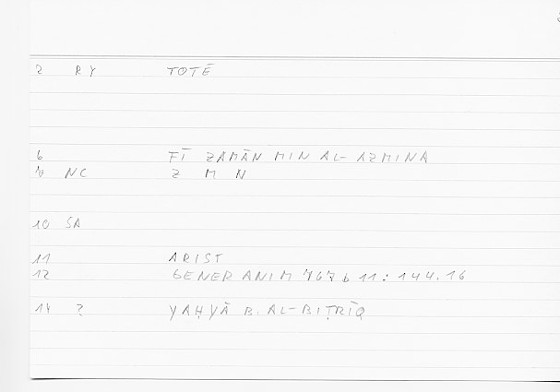 2 RY TOTĒ
6 FĪ ZAMĀN MIN AL-AZMINA
9 NC Z M N
10 SA
11 ARIST
12 GENER ANIM 767 b 11 : 144.16
14 ? YAḤYĀ B. AL-BIṬRĪQ